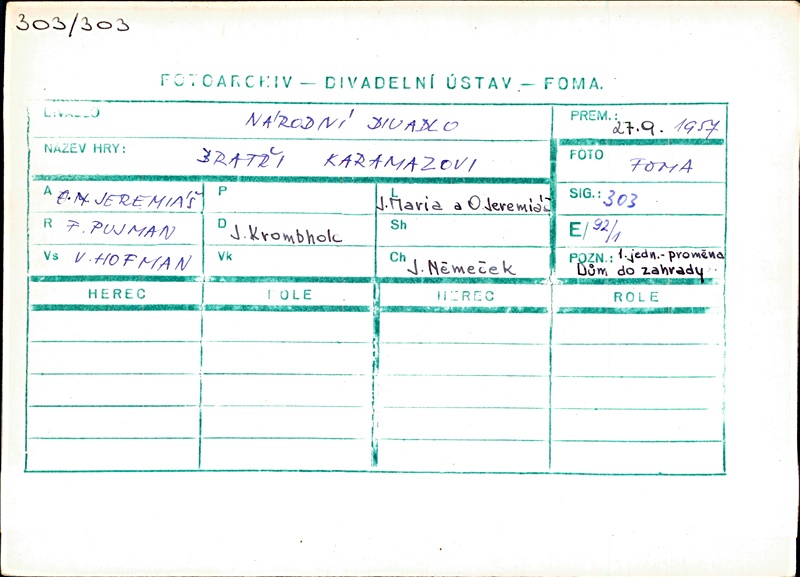 303/303
FOTOARCHIV — DIVADELNÍ ÚSTAV — FOMA.
DIVADLO NÁRODNÍ DIVADLO
PREM.: 27.9. 1957
NÁZEV HRY: BRATŘI KARAMAZOVI
FOTO FOMA
A JEREMIÁŠ
P
L J. Maria a O Jeremiáš
SIG.: 303
R F. PUJMAN
D J. Krombholc
Sh
E/92/1
Vs V. HOFMAN
Vk
Ch J. Němeček
POZN.: 1. jedn. - proměna
Dům do zahrady
HEREC ROLE HEREC ROLE